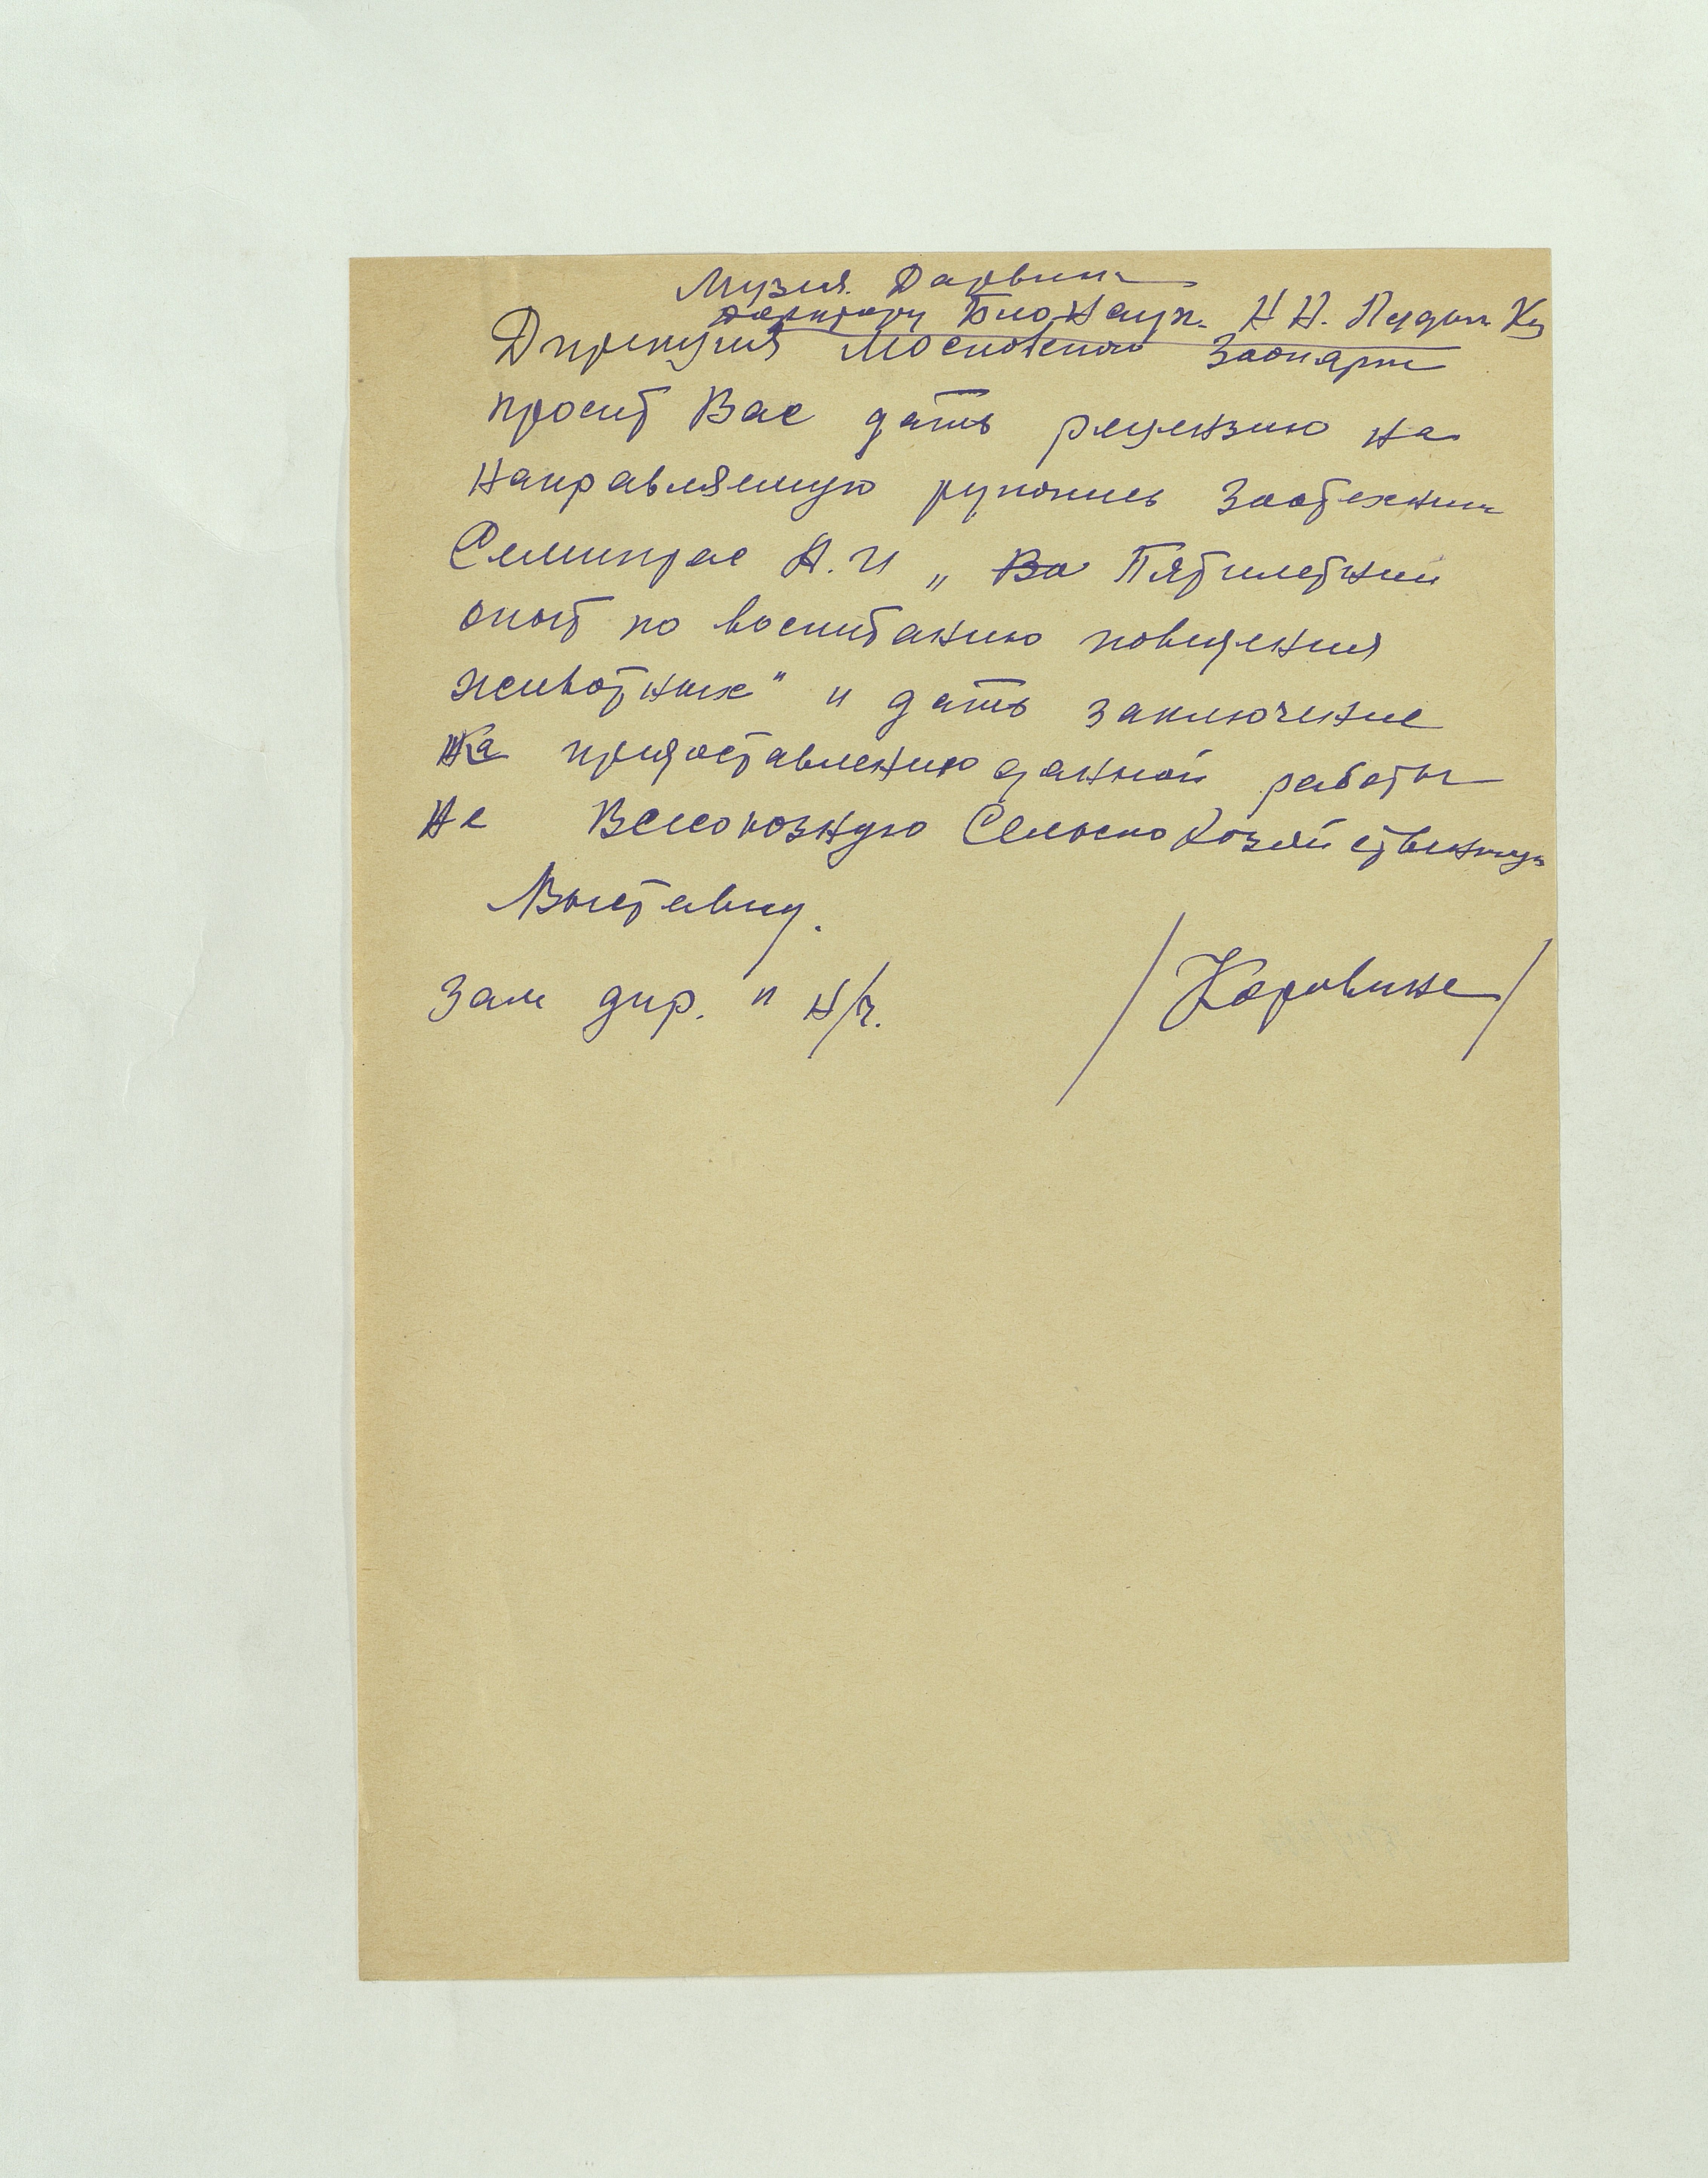 Музея Дарвина
доктору Био. Наук. Н Н. Ладыг Ко
Дирекция Московского Зоопарка
просит Вас дать рецензию на
направляемую рукопись Зоотехник
Семиграс А. И „ Во Пятилетний
опыт по воспитанию поведения
животных" и дать заключение
на предоставлению данной работы
на Всесоюзную Сельско Хозяйственную
Выставку.
Зам дир. п н/ч. /Коровина/